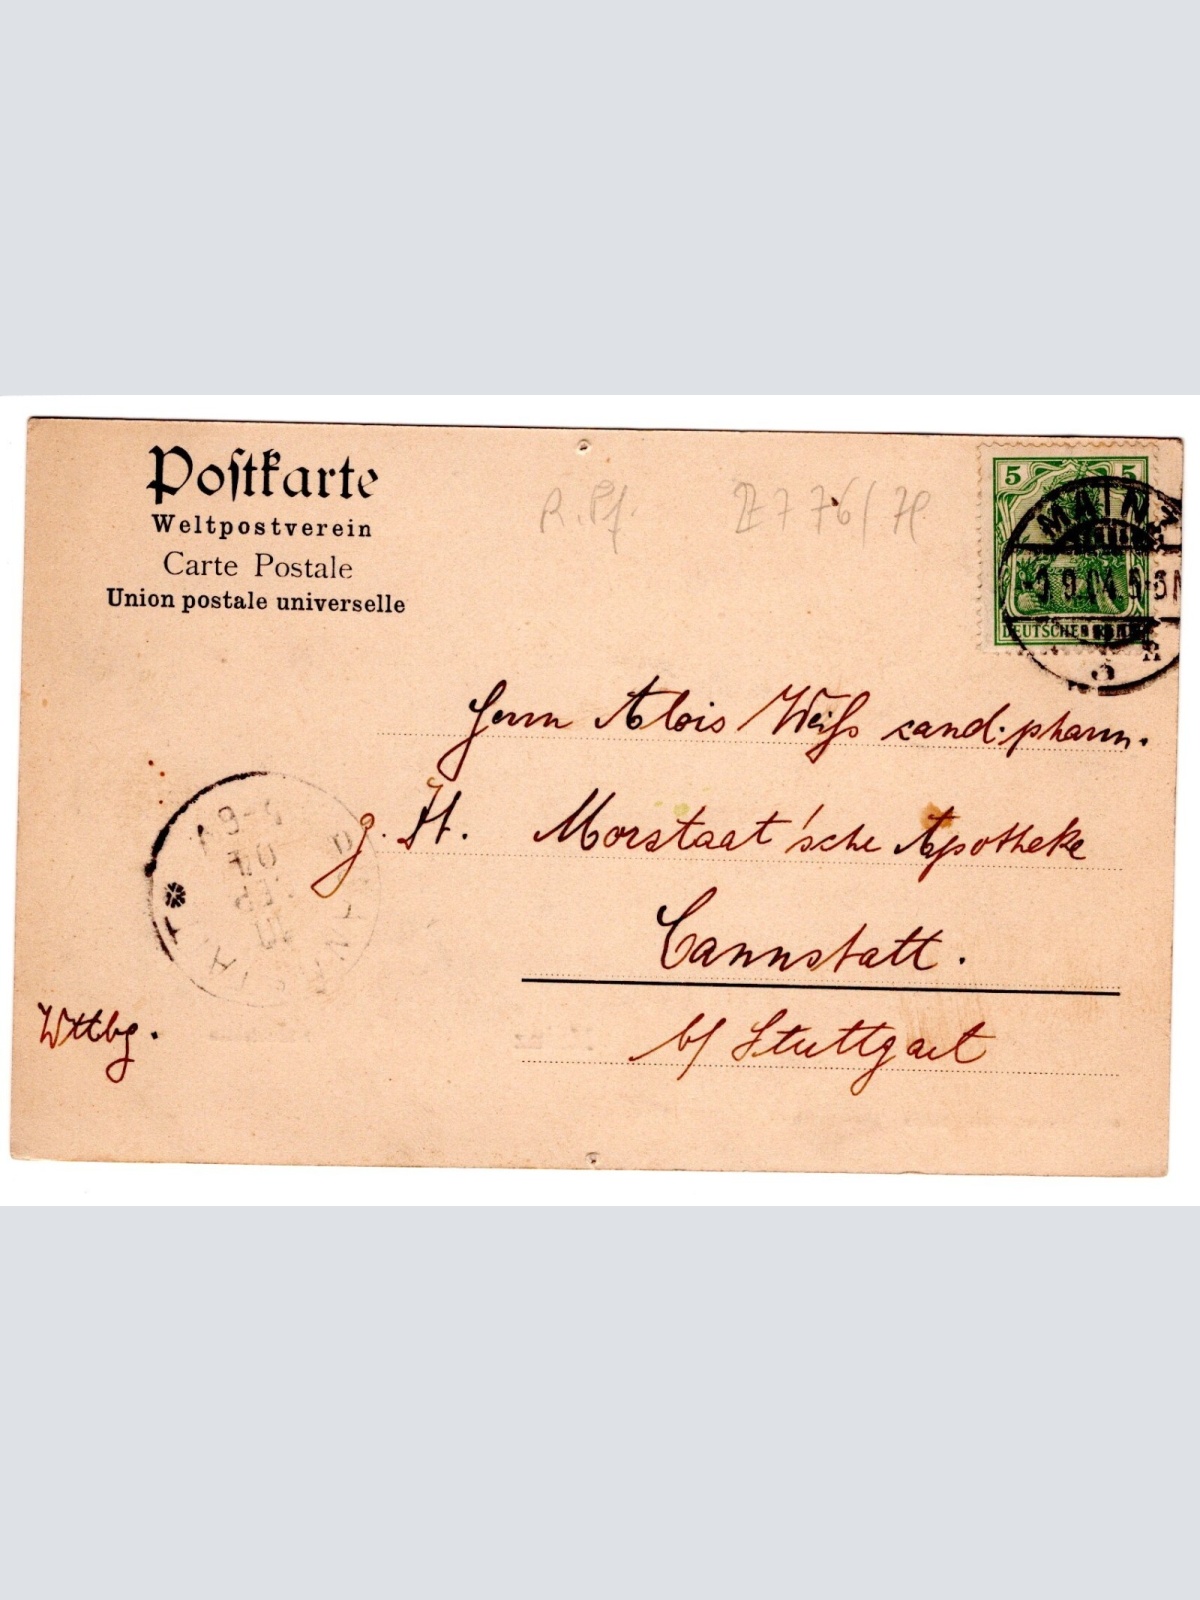 Postkarte
Weltpostverein
Carte Postale
Union postale universelle
R. Pf. Z776/7
5 5
MAINZ
9.04.5-6N
DEUTSCHES
3
Herrn Alois Weiss cand. pharm.
z. Zt. Morstaat'sche Apotheke
Cannstatt.
b/ Stuttgart
Wttbg.